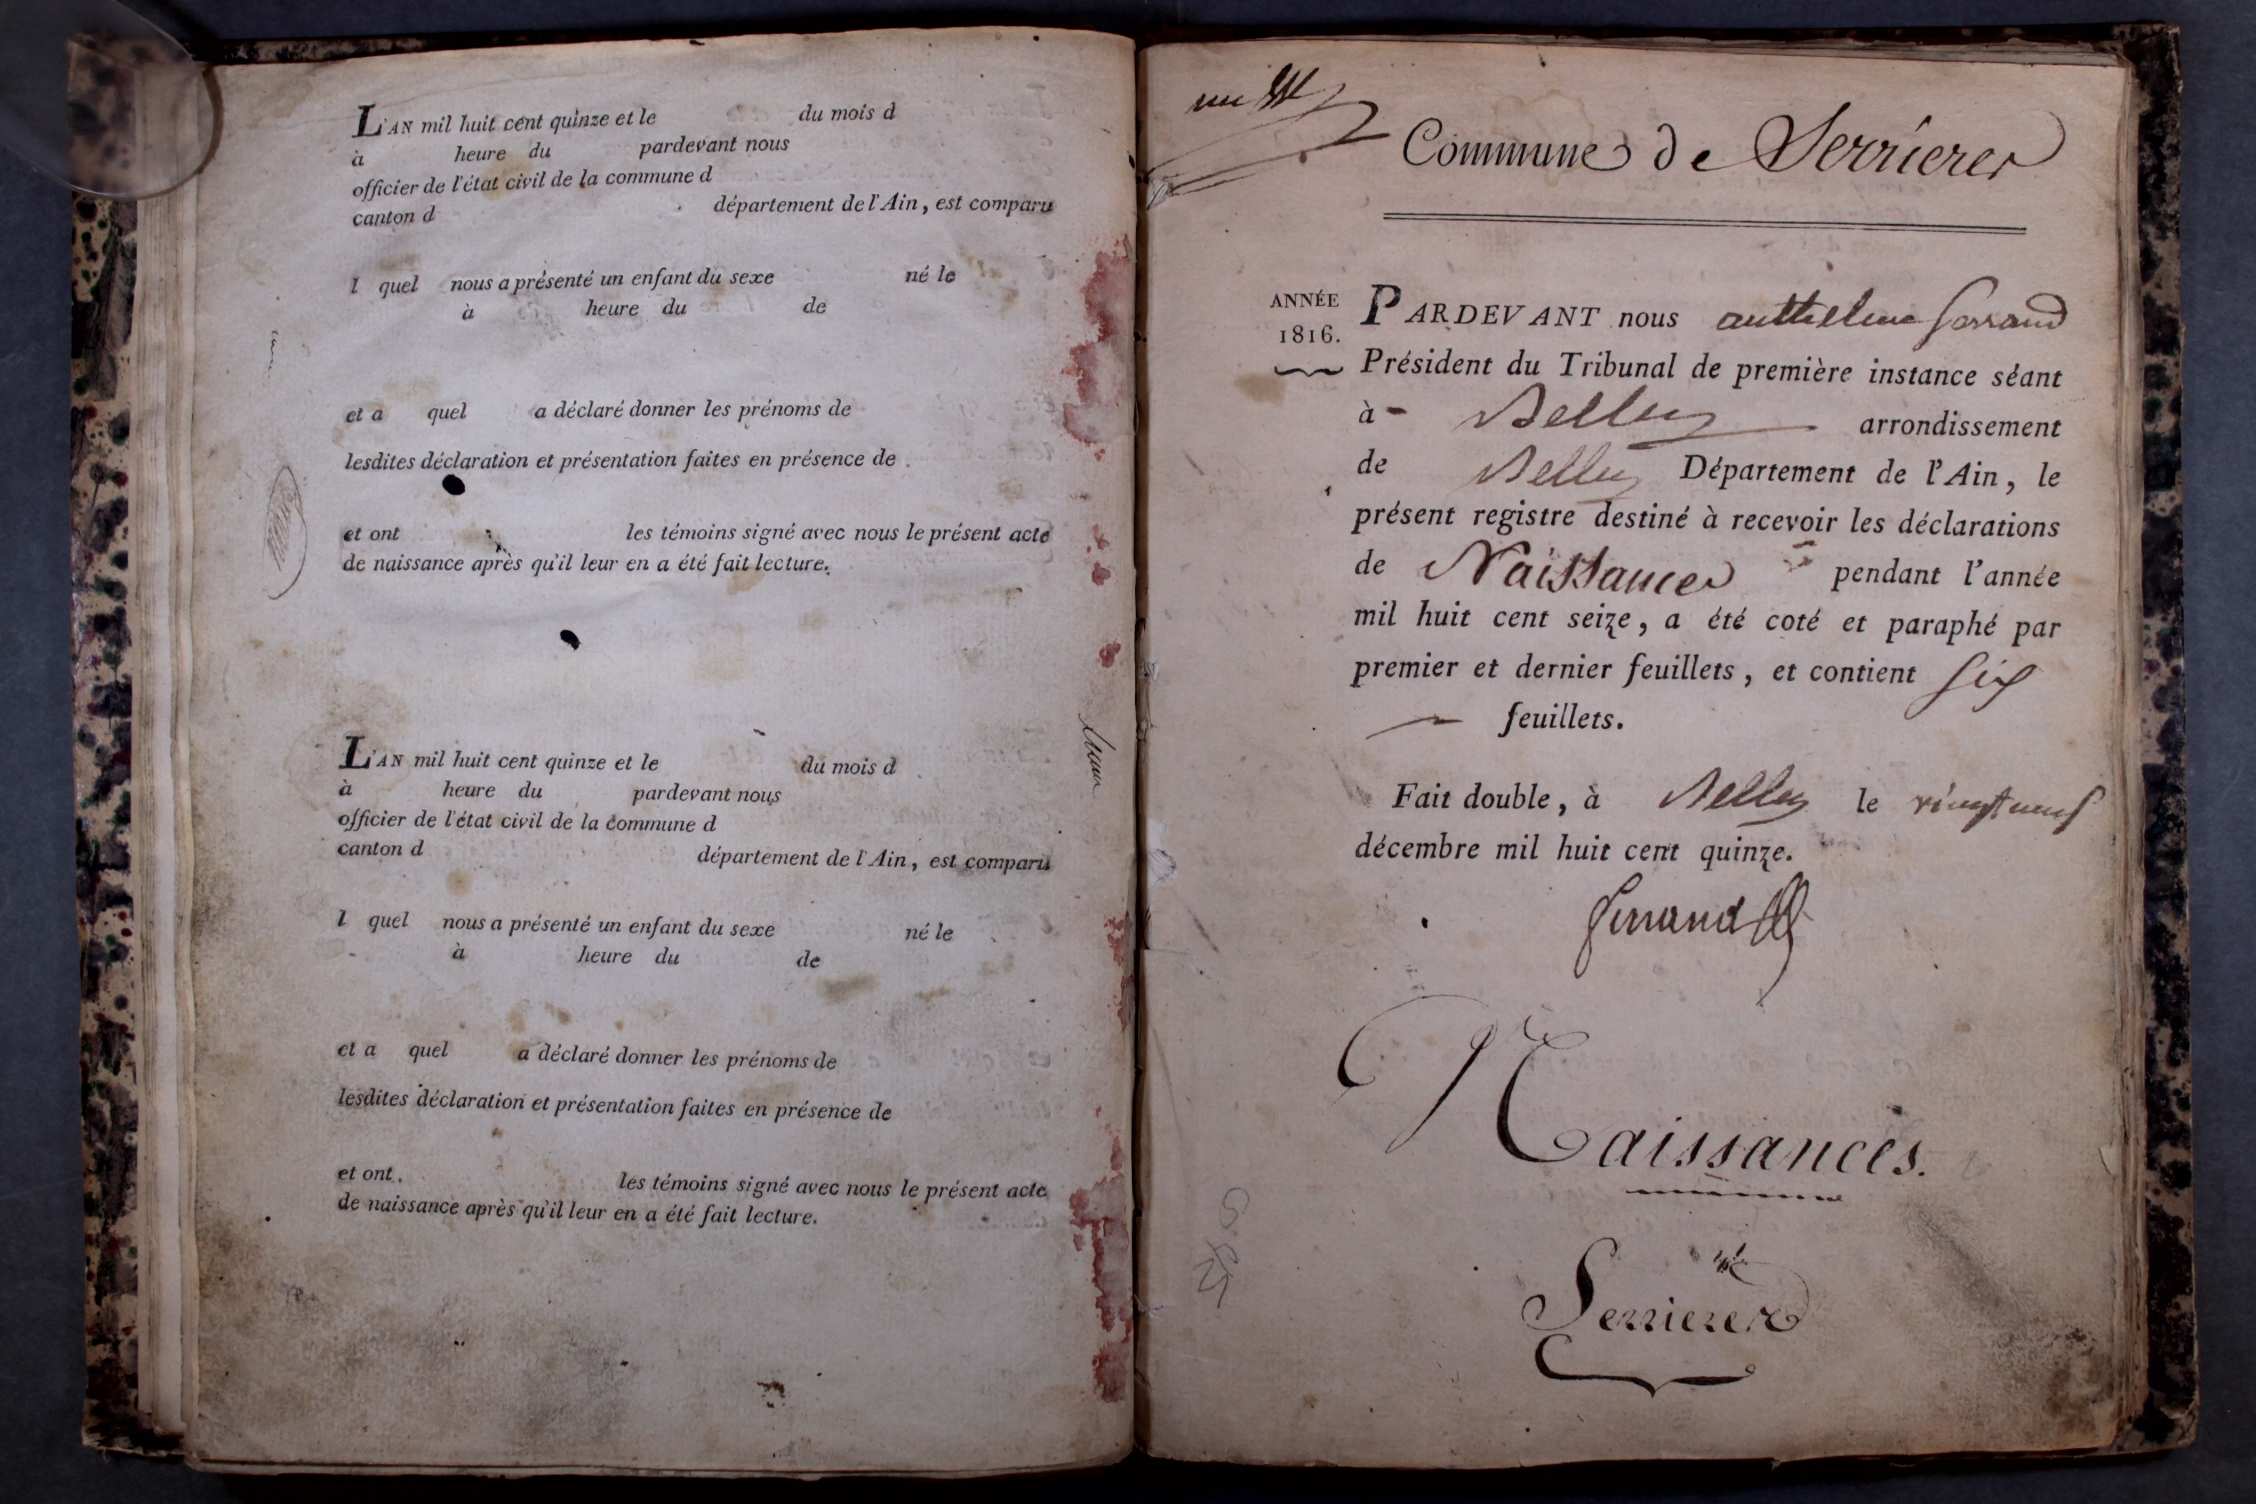 L'AN mil huit cent quinze et le du mois d
à heure du pardevant nous
officier de l'état civil de la commune d
canton d département de l'Ain, est comparu
l quel nous a présenté un enfant du sexe né le
à heure du de
et a quel a déclaré donner les prénoms de
lesdites déclaration et présentation faites en présence de
et ont les témoins signé avec nous le présent acte
de naissance après qu'il leur en a été fait lecture.
L'AN mil huit cent quinze et le du mois d
à heure du pardevant nous
officier de l'état civil de la commune d
canton d département de l'Ain, est comparu
l quel nous a présenté un enfant du sexe né le
à heure du de
et a quel a déclaré donner les prénoms de
lesdites déclaration et présentation faites en présence de
et ont les témoins signé avec nous le présent acte
de naissance après qu'il leur en a été fait lecture.
Commune de Serrieres
ANNÉE
1816.
PARDEVANT nous anthelme ferrand
Président du Tribunal de première instance séant
à Belley arrondissement
de Belley Département de l'Ain, le
présent registre destiné à recevoir les déclarations
de Naissances pendant l'année
mil huit cent seize, a été coté et paraphé par
premier et dernier feuillets, et contient six
feuillets.
Fait double, à Belley le vingt neuf
décembre mil huit cent quinze.
ferrand
Naissances.
Serrieres